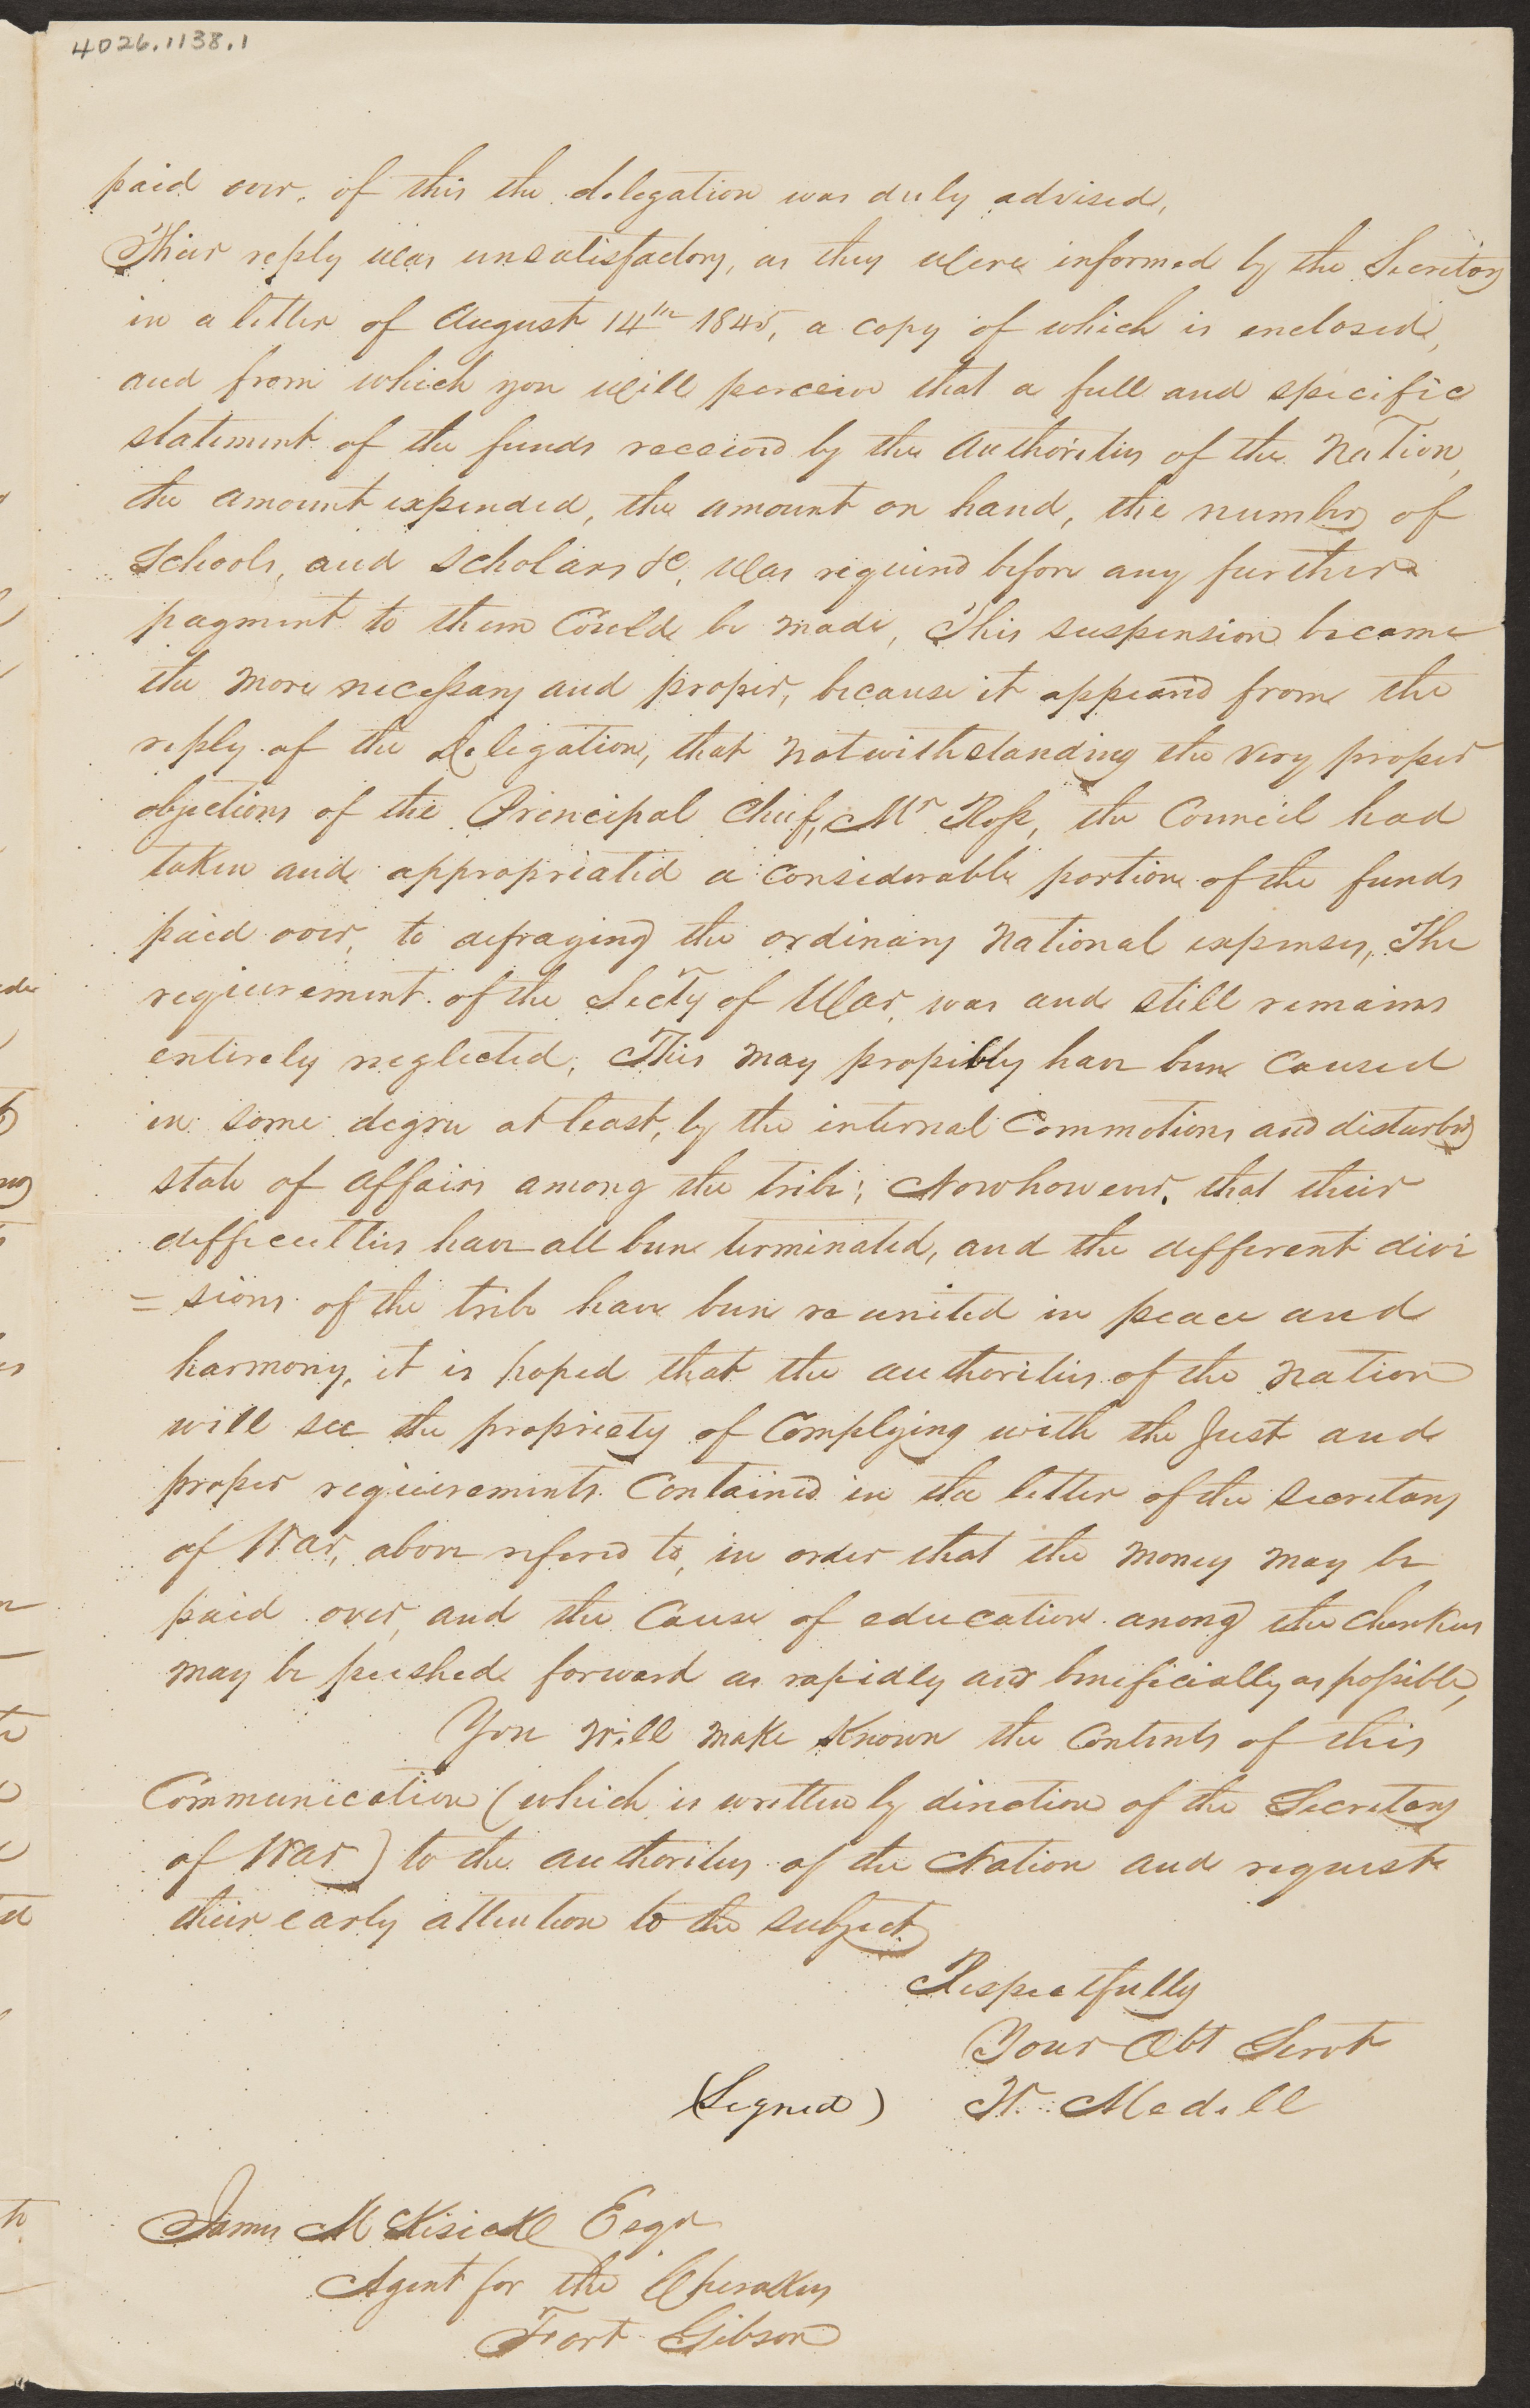 4026.1138.1
paid over. of this the delegation was duly advised,
Their reply was unsatisfactory, as they were informed by the Secretary
in a letter of August 14th 1845, a copy of which is enclosed,
and from which you will perceive that a full and specific
statement of the funds received by the Authorities of the Nation,
the amount expended, the amount on hand, the number of
Schools, and Scholars &c, was required before any further
payment to them Could be made, This suspension became
the more necessary and proper, because it appeared from the
reply of the Delegation, that notwithstanding the very proper
objections of the Principal Chief, Mr Ross, the Council had
taken and appropriated a Considerable portion of the funds
paid over, to defraying the ordinary National expenses, The
requirement of the Secty of War, was and still remains
entirely neglected, This may propibly have been Caused
in some degree at least, by the internal Commotions and disturbed
state of affairs among the tribe; Now however, that their
difficulties have all been terminated, and the different divi
= sions of the tribe have been reunited in peace and
harmony, it is hoped that the authorities of the Nation
will see the propriety of Complying with the Just and
proper requirements Contained in the letter of the Secretary
of War, above refered to, in order that the money may be
paid over, and the Cause of education among the Cherokees
may be pushed forward as rapidly and beneficially as possible,
You will make Known the Contents of this
Communication (which is written by direction of the Secretary
of War) to the authorities of the Nation and request
their early attention to the subject
Respectfully
Your Obt Servt
(Signed) W. Medill
James McKisick Esqr
Agent for the Cherokees
Fort Gibson